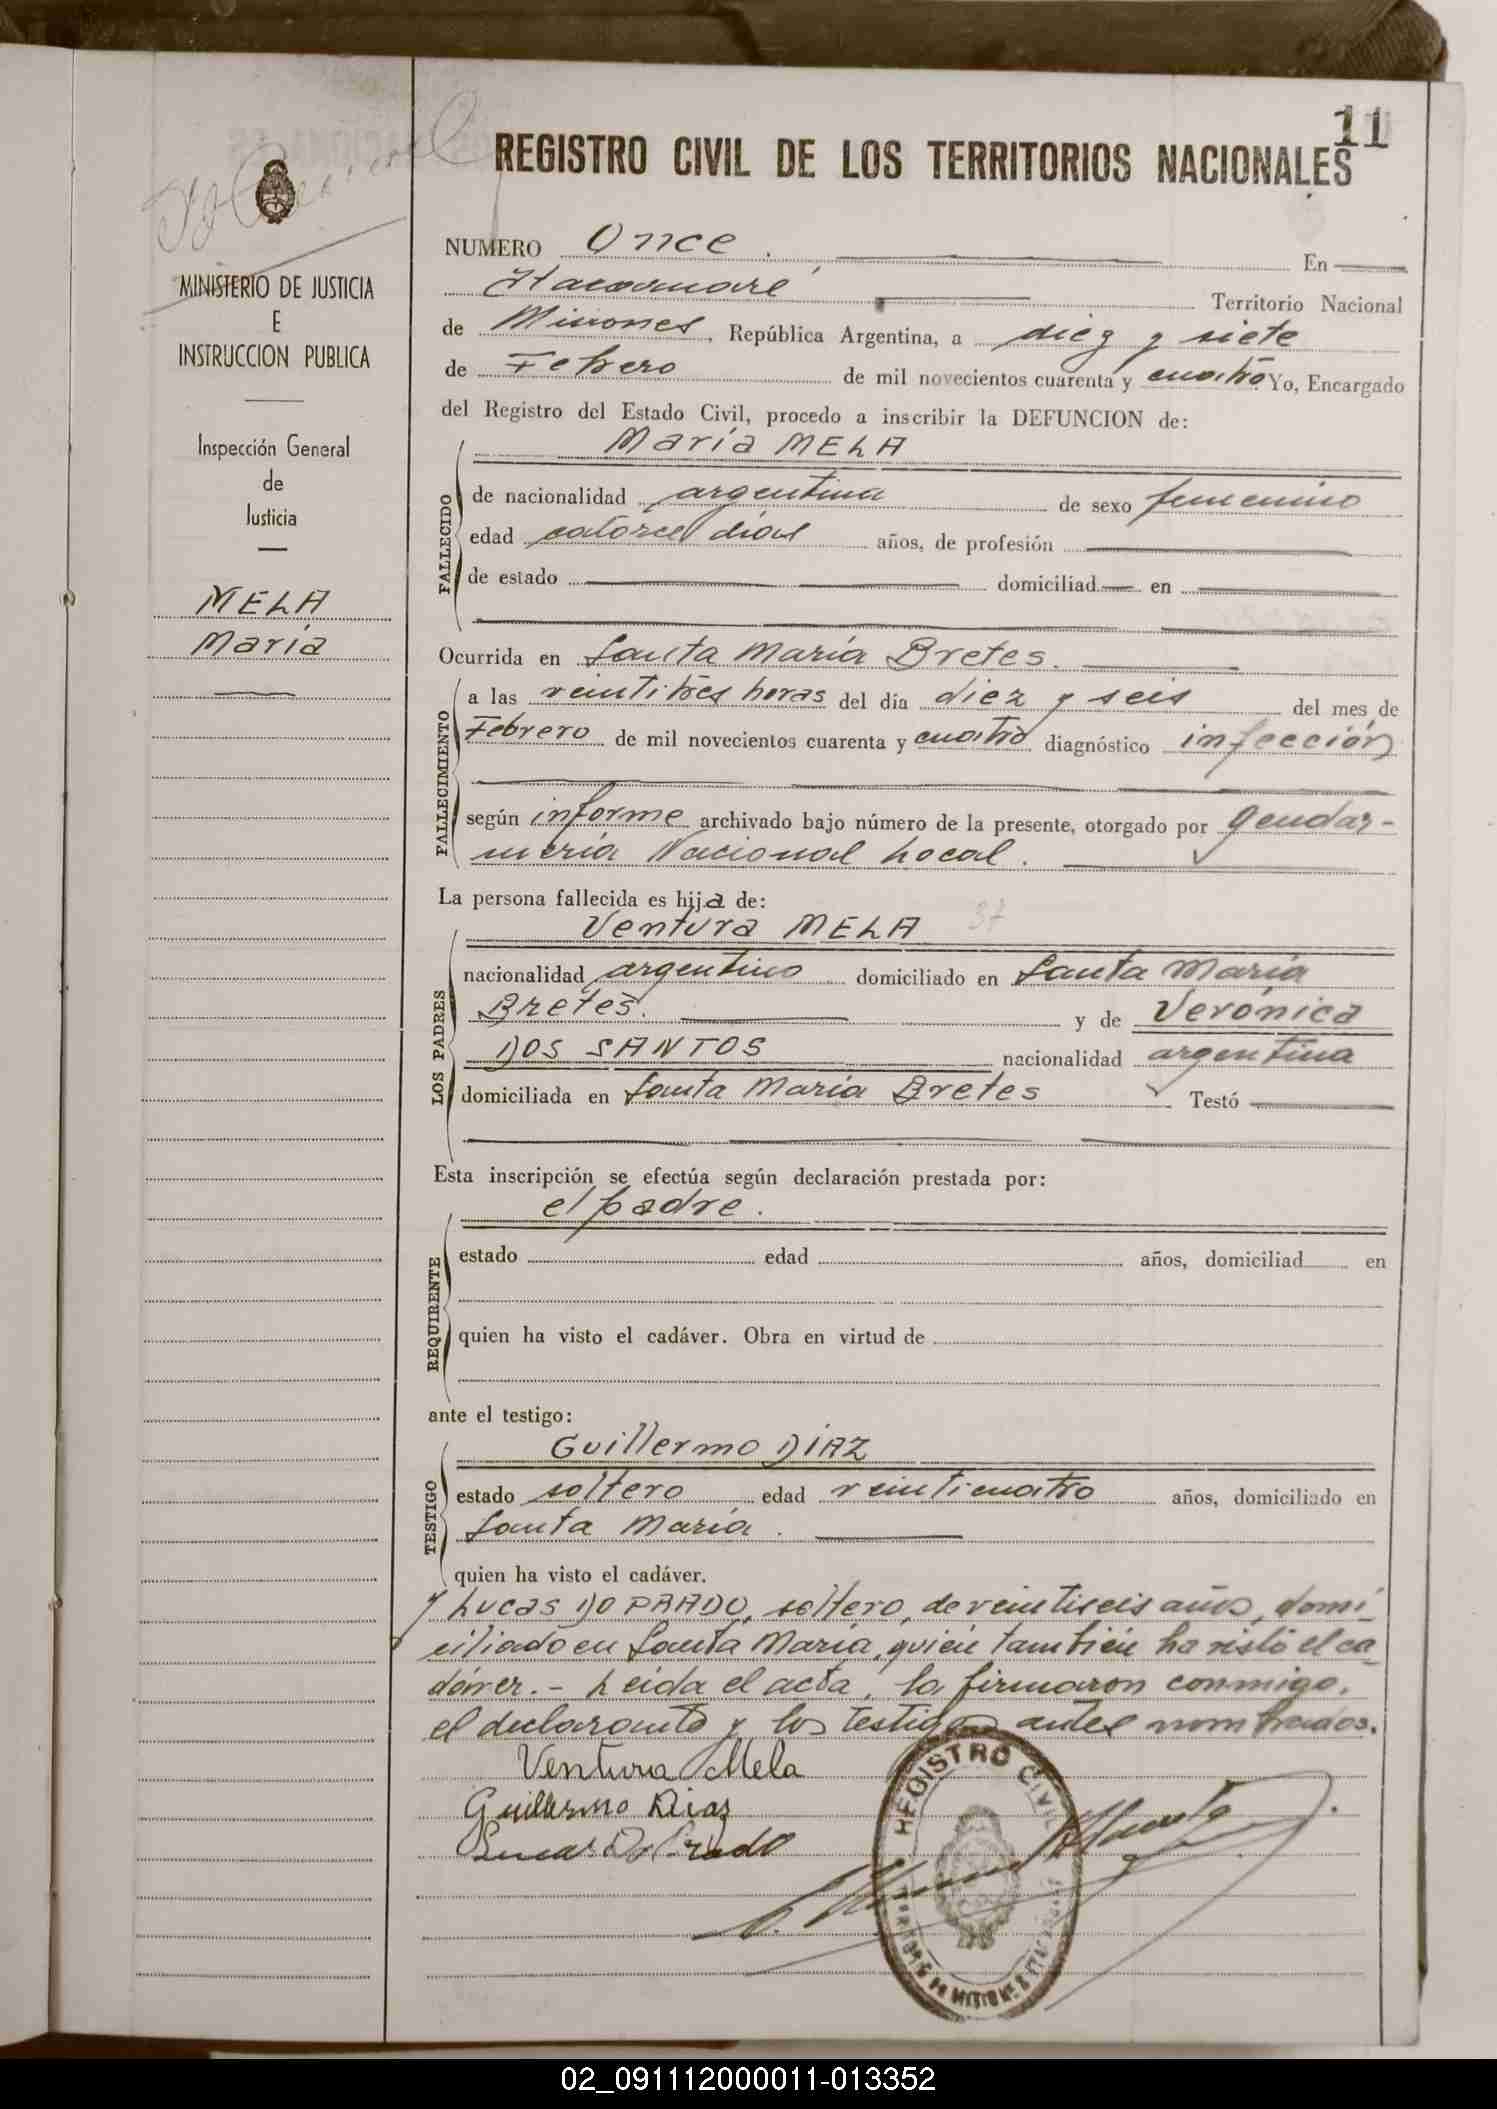 11
REGISTRO CIVIL DE LOS TERRITORIOS NACIONALES
MINISTERIO DE JUSTICIA
E
INSTRUCCION PUBLICA
Inspección General
de
Justicia
MELA
María
NUMERO Once. En
Itacaruaré Territorio Nacional
de Misiones, República Argentina, a diez y siete
de Febrero de mil novecientos cuarenta y cuatro. Yo, Encargado
del Registro del Estado Civil, procedo a inscribir la DEFUNCION de:
María MELA
FALLECIDO
de nacionalidad argentina de sexo femenino
edad catorce días años, de profesión
de estado domiciliad en
Ocurrida en Santa María Bretes.
FALLECIMIENTO
a las veintitrés horas del día diez y seis del mes de
Febrero de mil novecientos cuarenta y cuatro diagnóstico infección
según informe archivado bajo número de la presente, otorgado por gendar-
mería Nacional Local.
La persona fallecida es hija de:
Ventura MELA 37
LOS PADRES
nacionalidad argentino domiciliado en Santa María
Bretes. y de Verónica
DOS SANTOS nacionalidad argentina
domiciliada en Santa María Bretes Testó
Esta inscripción se efectúa según declaración prestada por:
el padre.
REQUIRENTE
estado edad años, domiciliad en
quien ha visto el cadáver. Obra en virtud de
ante el testigo:
Guillermo DÍAZ
TESTIGO
estado soltero edad veinticuatro años, domiciliado en
Santa María.
quien ha visto el cadáver.
y Lucas DO PRADO, soltero, de veintiseis años, domi-
ciliado en Santa María, quien también ha visto el ca-
dáver.- Leída el acta, la firmaron conmigo,
el declarante y los testigos antes nombrados.
Ventura Mela
Guillermo Dias
Lucas Do Prado
REGISTRO CIVIL
02_091112000011-013352